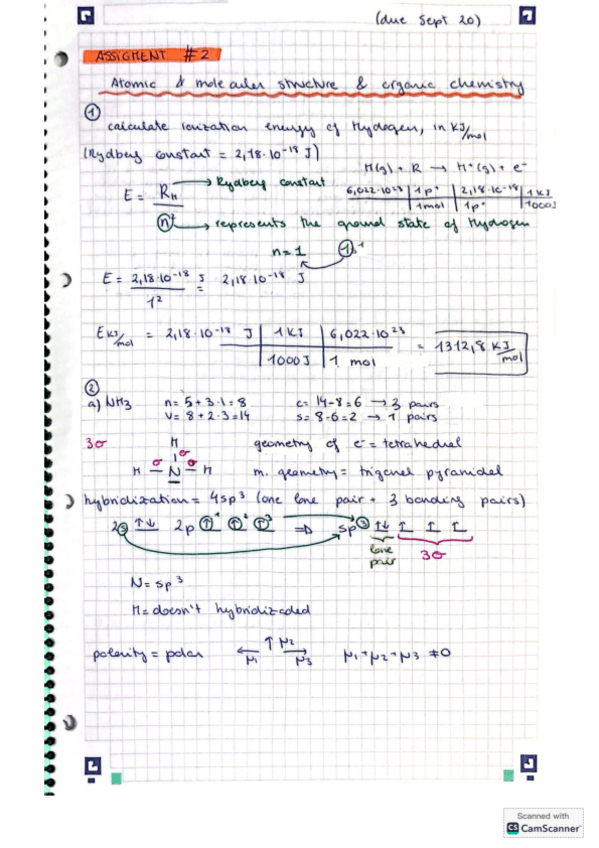 (due Sept 20)
ASSIGMENT #2
Atomic & molecular structure & organic chemistry
①
calculate ionization energy of Hydrogen, in KJ/mol
(Rydberg constant = 2,18·10⁻¹⁸ J)
H(g) + R → H⁺(g) + e⁻
E = R_H / n² → Rydberg constant
6,022·10²³ | 1p⁺ | 2,18·10⁻¹⁸ | 1KJ
1mol | 1p⁺ | 1000J
→ represents the ground state of Hydrogen
n=1
E = 2,18·10⁻¹⁸ J / 1² = 2,18·10⁻¹⁸ J
E KJ/mol = 2,18·10⁻¹⁸ J | 1KJ | 6,022·10²³ = 1312,8 KJ/mol
1000J | 1 mol
②
a) NH3 n= 5+3·1=8 c= 14-8=6 → 3 pairs
v= 8+2·3=14 s= 8-6=2 → 1 pairs
3σ H geometry of e⁻= tetrahedral
σ σ σ
H – N – H m. geometry= trigonal pyramidal
hybridization = 4sp³ (one lone pair + 3 bonding pairs)
2s ↑↓ 2p ↑¹ ↑² ↑³ ⇒ sp³ ↑↓ ↑ ↑ ↑
lone pair 3σ
N= sp³
H= doesn't hybridizaded
polarity= polar ← μ1 ↑ μ2 → μ3 μ1+μ2+μ3 ≠0
Scanned with
CS CamScanner